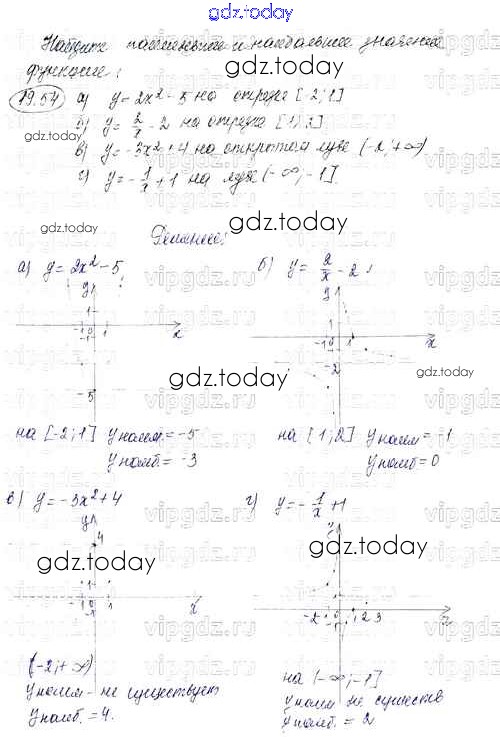 gdz.today
Найдите наименьшее и наибольшее значение
функции:
gdz.today
19.54 а) y = 2x² - 5 на отрезке [-2; 1]
б) y = 2/x - 2 на отрезке [1; 2]
gdz.today
в) y = -3x² + 4 на открытом луче (-2; +∞)
г) y = -1/x + 1 на луче (-∞; -1]
gdz.today
gdz.today
Решение:
а) y = 2x² - 5,
б) y = 2/x - 2,
y
y
1
-1 0 1
-1
x
x
-2
gdz.today
-5
gdz.today
на [-2; 1] y наим. = -5
y наиб. = -3
на [1; 2] y наим = -1
y наиб = 0
в) y = -3x² + 4
г) y = -1/x + 1
y
4
gdz.today
gdz.today
1
-1
1
x
-2
1 2 3
x
(-2; +∞)
y наим - не существует
y наиб. = 4.
на (-∞; -1]
y наим не существ
y наиб. = 2
gdz.today
gdz.today